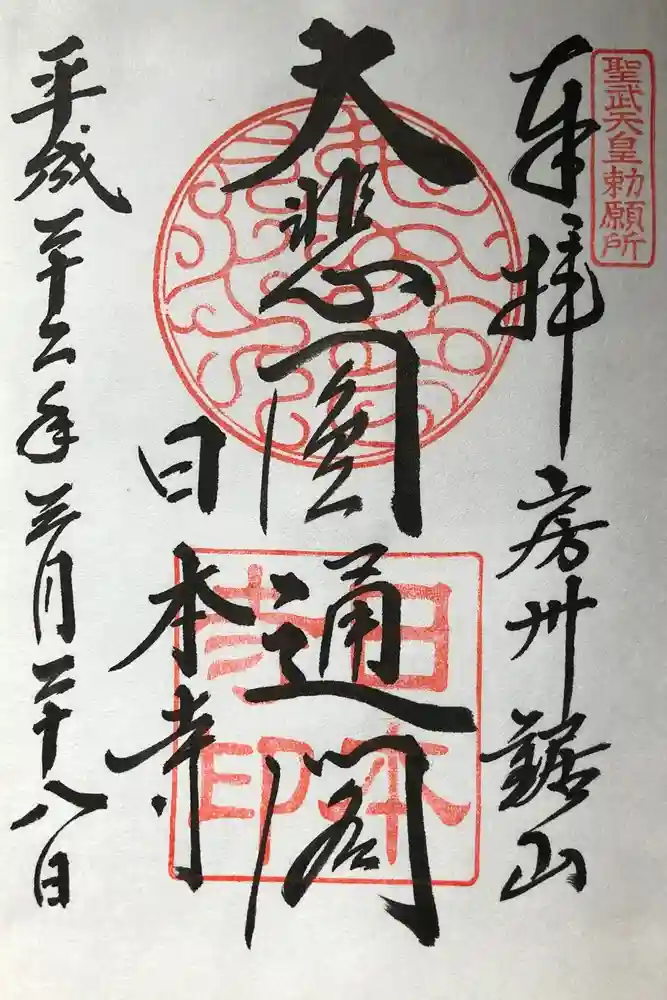 聖武天皇勅願所
奉拝
房州鋸山
大悲圓通閣
日本寺
日本寺印
平成二十二年三月二十八日